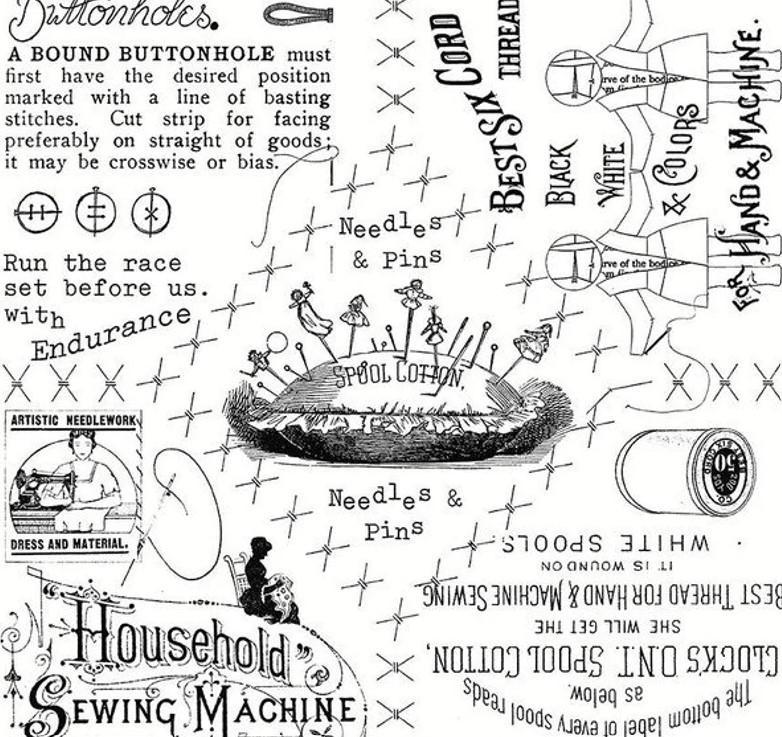 Buttonholes.
A BOUND BUTTONHOLE must
first have the desired position
marked with a line of basting
stitches. Cut strip for facing
preferably on straight of goods;
it may be crosswise or bias.
Run the race
set before us.
with
Endurance
Needles
& Pins
SPOOL COTTON,
Needles &
Pins
BEST SIX CORD
THREAD
BLACK
WHITE
& COLORS
FOR HAND & MACHINE.
rve of the bodice
rve of the bodice
ARTISTIC NEEDLEWORK
DRESS AND MATERIAL.
Household"
SEWING MACHINE
BEST SIX CORD
50
CO
The bottom label of every spool reads
as below.
CLOCK'S O.N.T. SPOOL COTTON,
SHE WILL GET THE
BEST THREAD FOR HAND & MACHINE SEWING
IT IS WOUND ON
WHITE SPOOLS